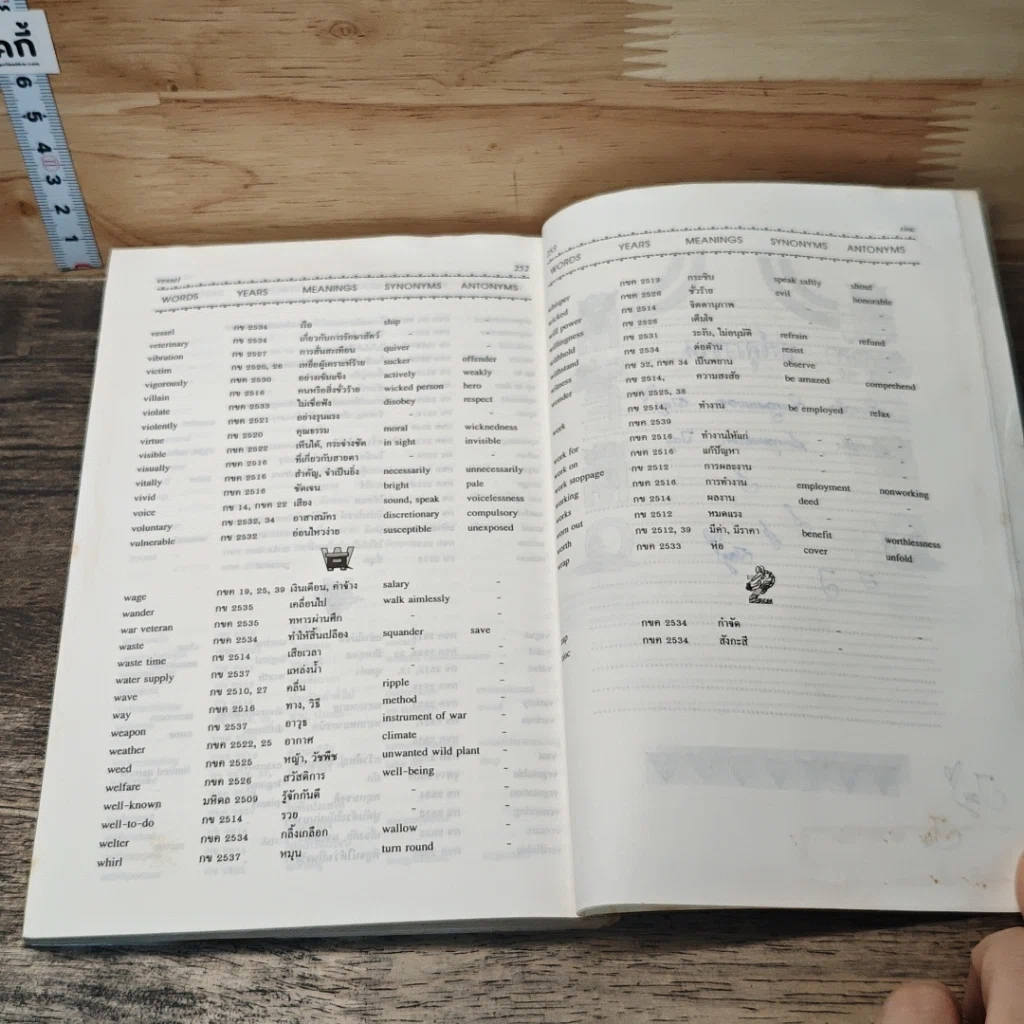 6
5
4
3
2
1
vessel 252
WORDS YEARS MEANINGS SYNONYMS ANTONYMS
vessel กข 2534 เรือ ship -
veterinary กข 2534 เกี่ยวกับการรักษาสัตว์ - -
vibration กข 2527 การสั่นสะเทือน quiver -
victim กข 2520, 26 เหยื่อผู้เคราะห์ร้าย sucker offender
vigorously กขค 2530 อย่างเข้มแข็ง actively weakly
villain กข 2516 คนหรือสิ่งชั่วร้าย wicked person hero
violate กขค 2533 ไม่เชื่อฟัง disobey respect
violently กขค 2521 อย่างรุนแรง - -
virtue กข 2520 คุณธรรม moral wickedness
visible กขค 2522 เห็นได้, กระจ่างชัด in sight invisible
visually กขค 2516 ที่เกี่ยวกับสายตา - -
vitally กขค 2516 สำคัญ, จำเป็นยิ่ง necessarily unnecessarily
vivid กขค 2516 ชัดเจน bright pale
voice กข 14, กขค 22 เสียง sound, speak voicelessness
voluntary กข 2532, 34 อาสาสมัคร discretionary compulsory
vulnerable กข 2532 อ่อนไหวง่าย susceptible unexposed
wage กขค 19, 25, 39 เงินเดือน, ค่าจ้าง salary -
wander กข 2535 เคลื่อนไป walk aimlessly -
war veteran กขค 2535 ทหารผ่านศึก - -
waste กขค 2534 ทำให้สิ้นเปลือง squander save
waste time กข 2514 เสียเวลา - -
water supply กข 2537 แหล่งน้ำ - -
wave กข 2510, 27 คลื่น ripple -
way กขค 2516 ทาง, วิธี method -
weapon กข 2537 อาวุธ instrument of war -
weather กขค 2522, 25 อากาศ climate -
weed กขค 2525 หญ้า, วัชพืช unwanted wild plant -
welfare กขค 2526 สวัสดิการ well-being -
well-known มหิดล 2509 รู้จักกันดี - -
well-to-do กข 2514 รวย - -
welter กขค 2534 กลิ้งเกลือก wallow -
whirl กข 2537 หมุน turn round -
253 zinc
WORDS YEARS MEANINGS SYNONYMS ANTONYMS
whisper กขค 2519 กระซิบ speak saftly shout
wicked กขค 2526 ชั่วร้าย evil honorable
will power กข 2514 จิตตานุภาพ - -
willingness กข 2526 เต็มใจ - -
withhold กข 2531 ระงับ, ไม่อนุมัติ refrain refund
withstand กข 2534 ต่อต้าน resist -
witness กข 32, กขค 34 เป็นพยาน observe -
wonder กข 2514, ความสงสัย be amazed comprehend
กขค 2525, 38
work กข 2514, ทำงาน be employed relax
กขค 2539
work for กขค 2516 ทำงานให้แก่ - -
work on กขค 2516 แก้ปัญหา - -
work stoppage กข 2512 การผละงาน - -
working กขค 2516 การทำงาน employment nonworking
works กข 2514 ผลงาน deed -
worn out กข 2512 หมดแรง - -
worth กข 2512, 39 มีค่า, มีราคา benefit worthlessness
wrap กขค 2533 ห่อ cover unfold
กขค 2534 กำจัด - -
zinc กขค 2534 สังกะสี - -